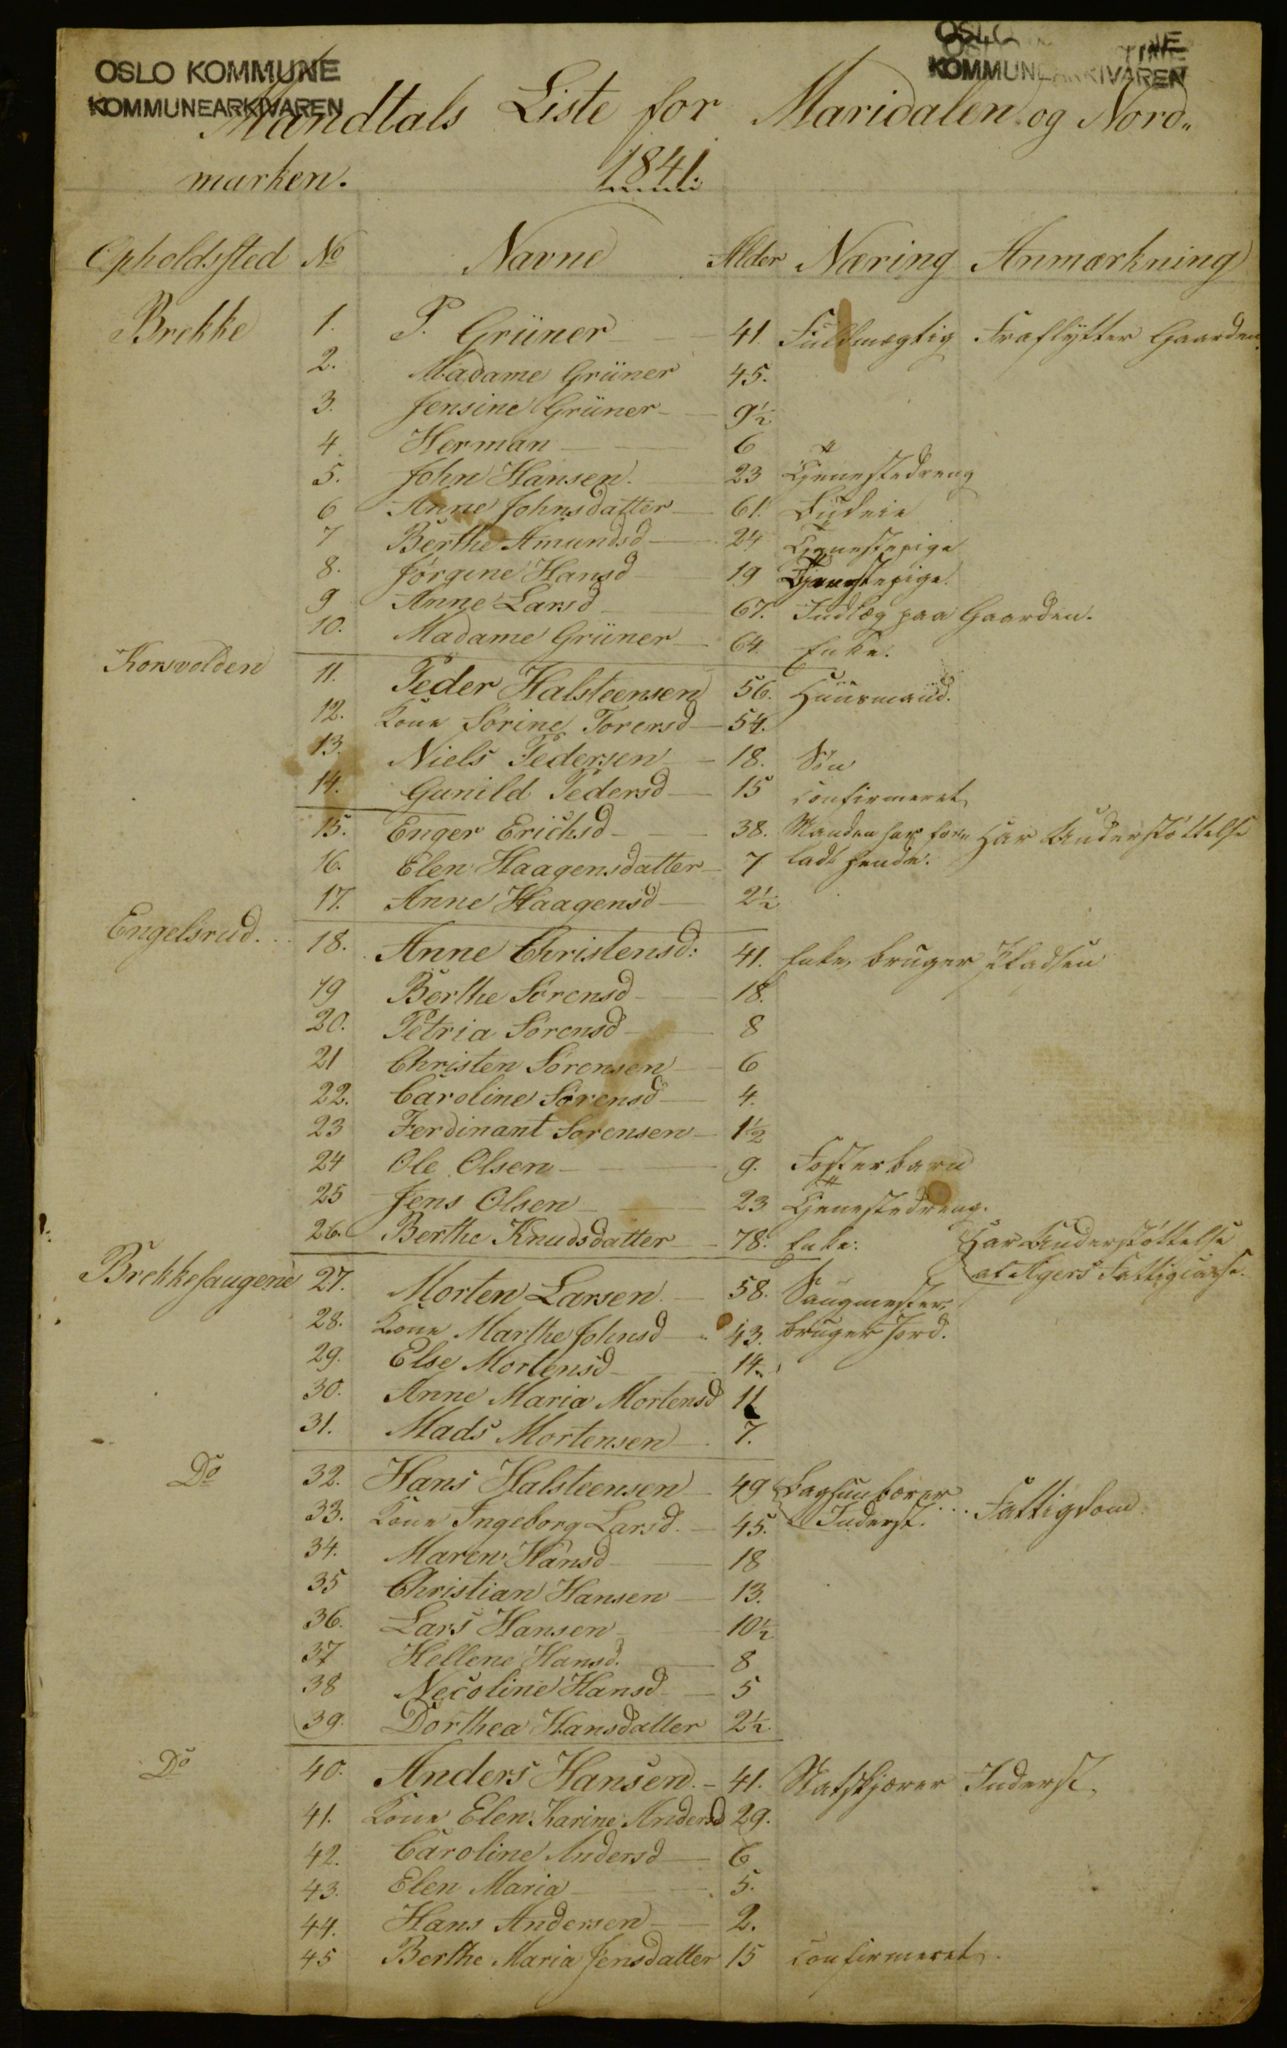 OSLO KOMMUNE
KOMMUNEARKIVAREN
OSLO KOMMUNE
KOMMUNEARKIVAREN
Mandtals Liste for Maridalen og Nord„
marken. 1841.
Opholdssted No Navne Alder Næring Anmærkning
Brekke 1. P. Grüner 41. Fuldmægtig Fraflytter Gaarden.
2. Madame Grüner 45.
3. Jensine Grüner 9½
4. Herman 6
5. John Hansen. 23 Tjenestedreng
6 Anne Johnsdatter 61. Budeie
7 Berthe Amundsd 24 Tjenestepige
8. Jørgine Hansd 19 Tjenestepige.
9 Anne Larsd 67. Indlæg paa Gaarden.
10. Madame Grüner 64. Enke.
Korsvolden 11. Peder Halsteensen 56. Huusmand.
12. Kone Sørine Torersd 54.
13. Niels Pedersen 18. Søn
14. Gunild Pedersd 15 confirmeret
15. Enger Erichsd 38. Manden har for„ Har Understøttelse
16. Elen Haagensdatter 7 ladt hende.
17. Anne Haagensd 2½
Engelsrud. 18. Anne Christensd: 41. Enke, bruger Pladsen
19 Berthe Sørensd 18.
20. Petria Sørensd 8
21 Christen Sørensen 6
22. Caroline Sørensd 4.
23 Ferdinant Sørensen 1½
24 Ole Olsen 9. Fosterbarn
25 Jens Olsen 23 Tjenestedreng.
26. Berthe Knudsdatter 78. Enke. Har Understøttelse
af Agers Fattigcasse.
Brekkesaugene 27. Morten Larsen 58. Saugmester,
28. Kone Marthe Johnsd 43. bruger Jord.
29. Else Mortensd 14.
30. Anne Maria Mortensd 11
31. Mads Mortensen 7.
Do 32. Hans Halsteensen 49 Baghunbærer
33. Kone Ingeborg Larsd. 45. Inderst. Fattigdom
34. Maren Hansd 18
35 Christian Hansen 13.
36. Lars Hansen 10½
37 Hellene Hansd. 8
38 Necoline Hansd 5
39. Dorthea Hansdatter 2½
Do 40. Anders Hansen. 41. Inderst.
41. Kone Elen Karine Andersd 29.
42. Caroline Andersd 6
43. Elen Maria 5.
44. Hans Andersen 2.
45 Berthe Maria Jensdatter 15 confirmeret.